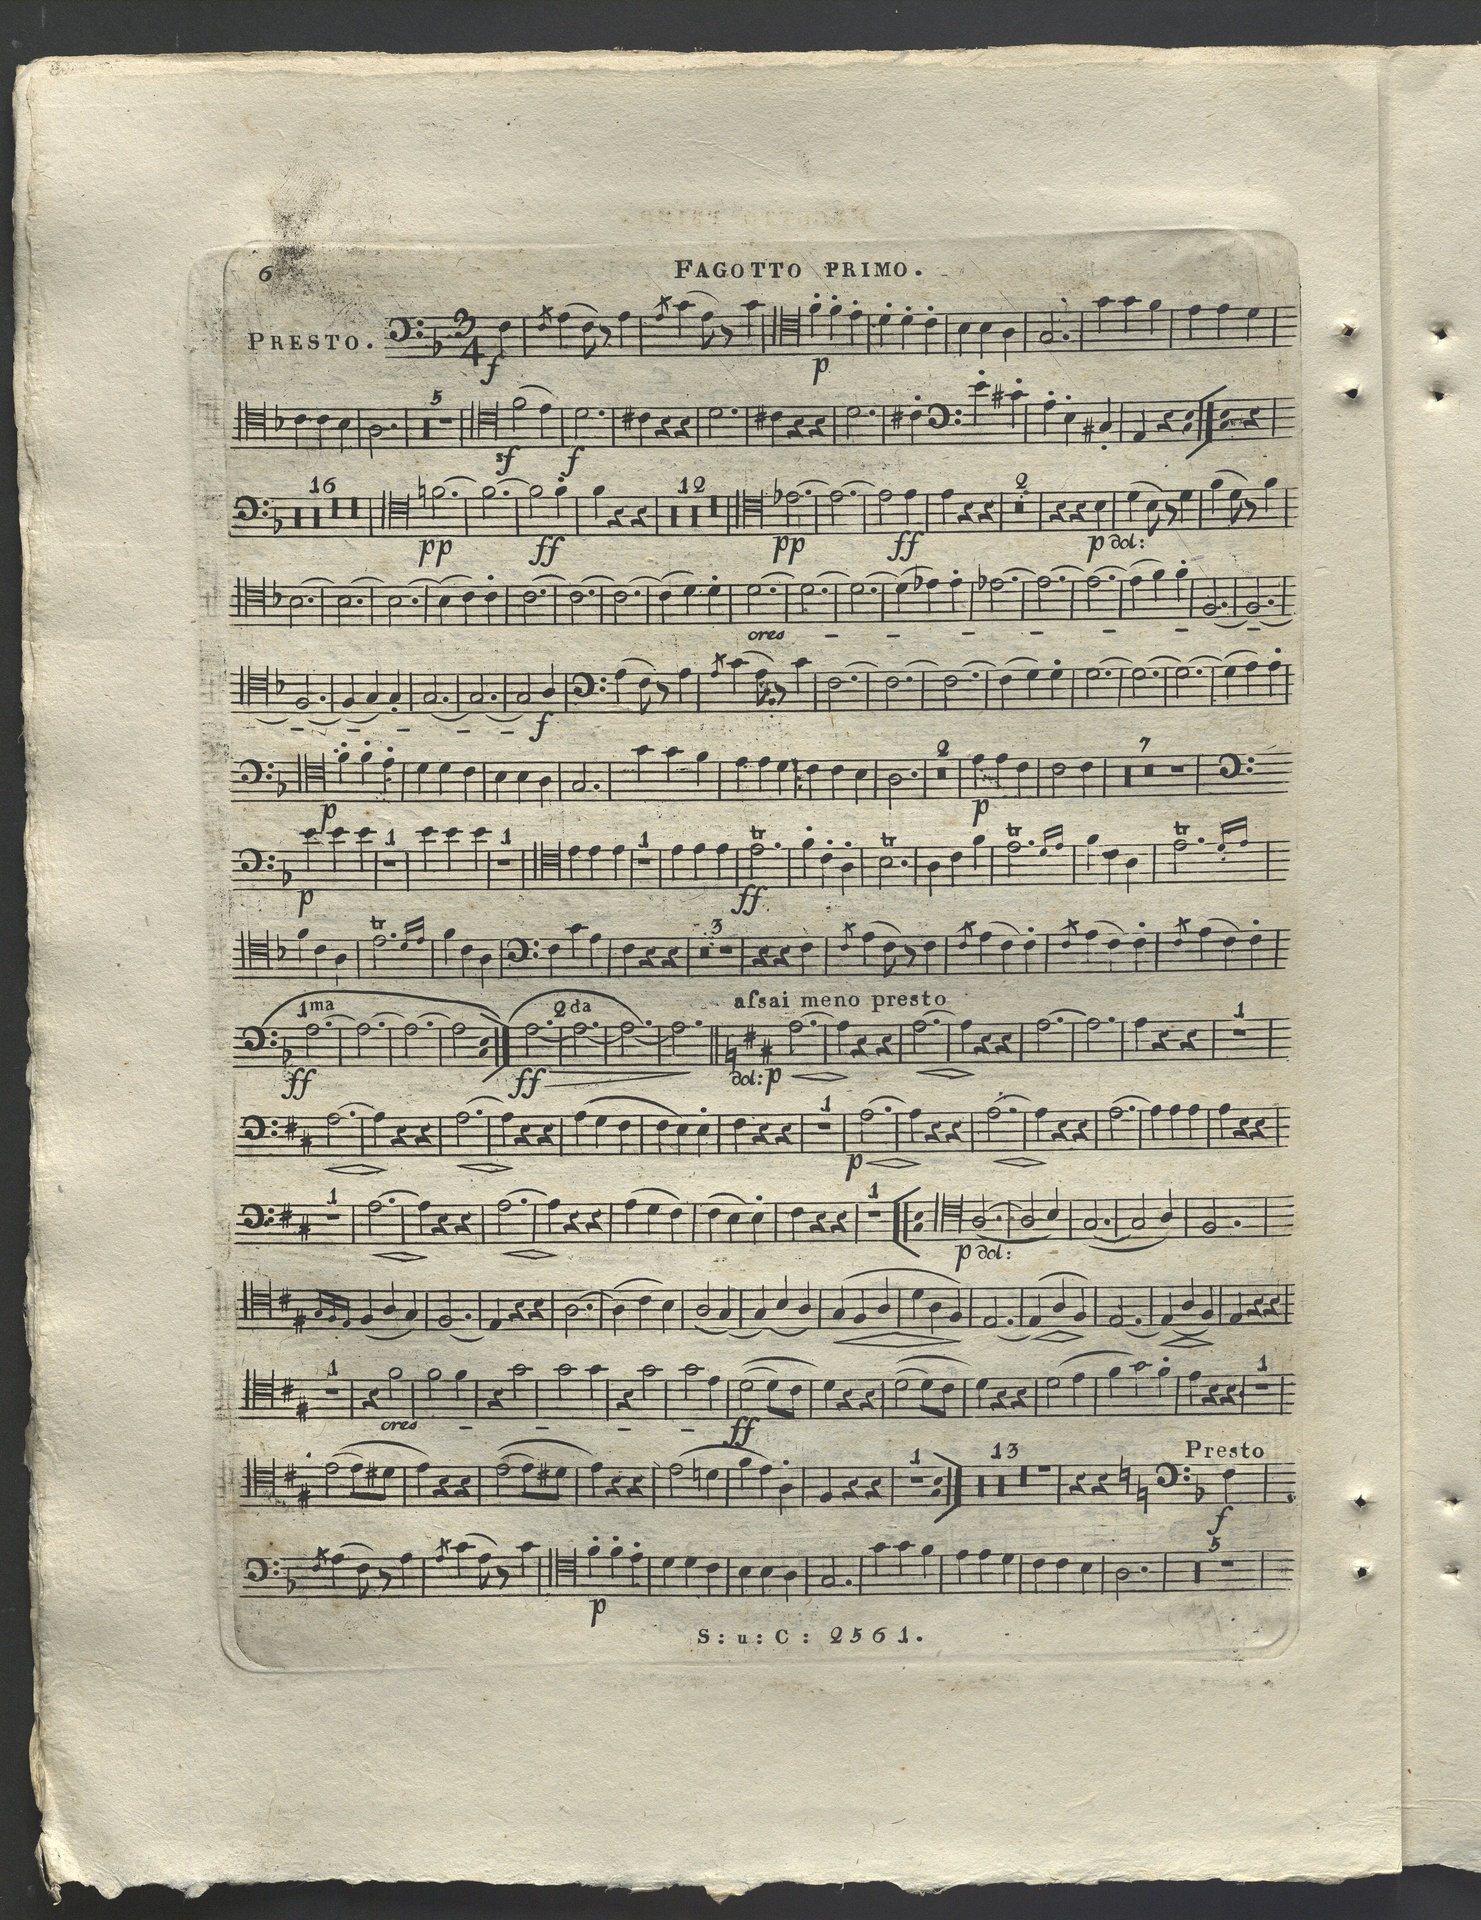 6
FAGOTTO PRIMO.
PRESTO.
3
4
f
p
5
sf
f
16
pp
ff
12
pp
ff
2
p dol:
cres
f
p
2
p
7
p
1
1
1
tr
ff
tr
tr
tr
tr
3
1ma
ff
2da
ff
aſsai meno presto
dol: p
1
1
p
1
1
p dol:
1
cres
ff
1
1
13
Presto
f
p
5
S: u: C: 2561.